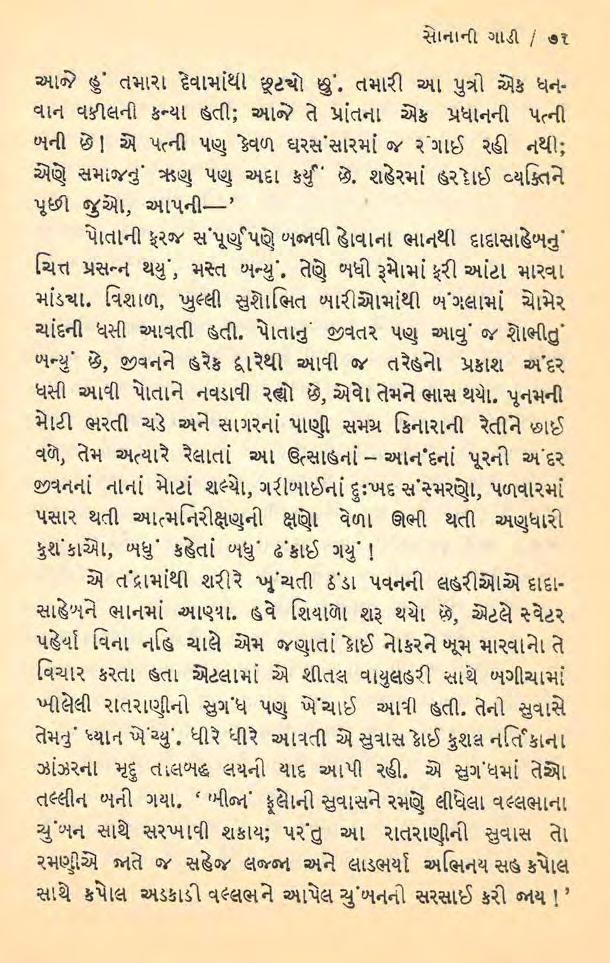 સોનાની ગાડી / ૭૧
આજે હું તમારા દેવામાંથી છૂટયો છું. તમારી આ પુત્રી એક ધન-
વાન વકીલની કન્યા હતી; આજે તે પ્રાંતના એક પ્રધાનની પત્ની
બની છે! એ પત્ની પણ કેવળ ઘરસંસારમાં જ રંગાઈ રહી નથી;
એણે સમાજનું ઋણ પણ અદા કર્યું છે. શહેરમાં હરકોઈ વ્યક્તિને
પૂછી જુઓ, આપની—’
પોતાની ફરજ સંપૂર્ણપણે બજાવી હોવાના ભાનથી દાદાસાહેબનું
ચિત્ત પ્રસન્ન થયું, મસ્ત બન્યું. તેણે બધી રૂમોમાં ફરી આંટા મારવા
માંડયા. વિશાળ, ખુલ્લી સુશોભિત બારીઓમાંથી બંગલામાં ચોમેર
ચાંદની ધસી આવતી હતી. પોતાનું જીવતર પણ આવું જ શોભીતું
બન્યું છે, જીવનને હરેક દ્વારેથી આવી જ તરેહનો પ્રકાશ અંદર
ધસી આવી પોતાને નવડાવી રહ્યો છે, એવો તેમને ભાસ થયો. પૂનમની
મોટી ભરતી ચડે અને સાગરનાં પાણી સમગ્ર કિનારાની રેતીને છાઈ
વળે, તેમ અત્યારે રેલાતાં આ ઉત્સાહનાં – આનંદનાં પૂરની અંદર
જીવનનાં નાનાં મોટાં શલ્યો, ગરીબાઈનાં દુઃખદ સંસ્મરણો, પળવારમાં
પસાર થતી આત્મનિરીક્ષણની ક્ષણો વેળા ઊભી થતી અણધારી
કુશંકાઓ, બધું કહેતાં બધું ઢંકાઈ ગયું!
એ તંદ્રામાંથી શરીરે ખૂંચતી ઠંડા પવનની લહરીઓએ દાદા-
સાહેબને ભાનમાં આણ્યા. હવે શિયાળો શરૂ થયો છે, એટલે સ્વેટર
પહેર્યા વિના નહિ ચાલે એમ જણાતાં કોઈ નોકરને બૂમ મારવાનો તે
વિચાર કરતા હતા એટલામાં એ શીતલ વાયુલહરી સાથે બગીચામાં
ખીલેલી રાતરાણીની સુગંધ પણ ખેંચાઈ આવી હતી. તેની સુવાસે
તેમનું ધ્યાન ખેંચ્યું. ધીરે ધીરે આવતી એ સુવાસ કોઈ કુશલ નર્તિકાના
ઝાંઝરના મૃદુ તાલબદ્ધ લયની યાદ આપી રહી. એ સુગંધમાં તેઓ
તલ્લીન બની ગયા. ‘ બીજાં ફૂલોની સુવાસને રમણે લીધેલા વલ્લભાના
ચુંબન સાથે સરખાવી શકાય; પરંતુ આ રાતરાણીની સુવાસ તો
રમણીએ જાતે જ સહેજ લજ્જા અને લાડભર્યા અભિનય સહ કપોલ
સાથે કપોલ અડકાડી વલ્લભને આપેલ ચુંબનની સરસાઈ કરી જાય !’